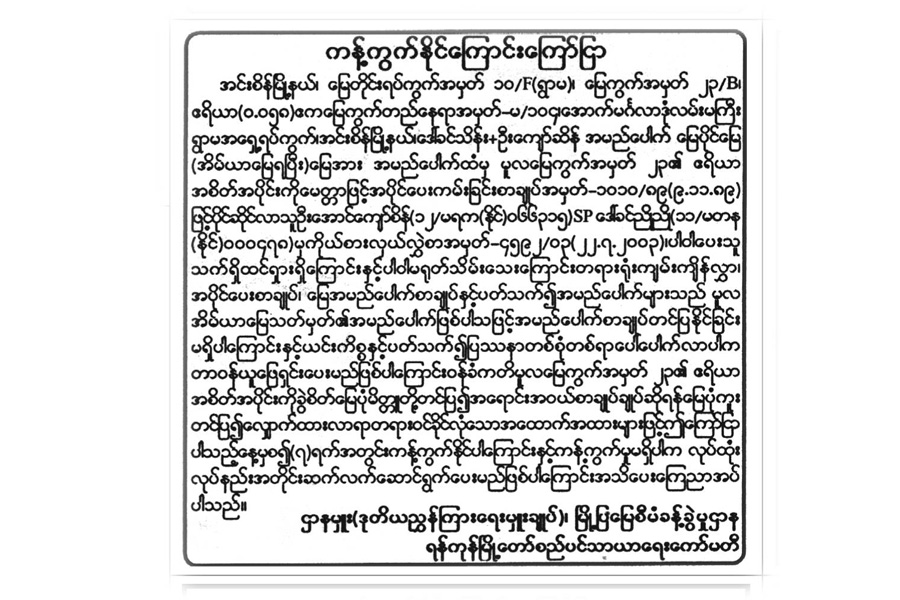 ကန့်ကွက်နိုင်ကြောင်းကြော်ငြာ
အင်းစိန်မြို့နယ်၊ မြေတိုင်းရပ်ကွက်အမှတ် ၁၀/F(ရွာမ)၊ မြေကွက်အမှတ် ၂၃/B၊
ဧရိယာ(၀.၀၅၈)ဧကမြေကွက်တည်နေရာအမှတ်-မ/၁၀၄၊အောက်မင်္ဂလာဒုံလမ်းမကြီး
ရွာမအရှေ့ရပ်ကွက်၊အင်းစိန်မြို့နယ်၊ဒေါ်ခင်သိန်း+ဦးကျော်ဆိန် အမည်ပေါက် မြေပိုင်မြေ
(အိမ်ယာမြေရပြီး)မြေအား အမည်ပေါက်ထံမှ မူလမြေကွက်အမှတ် ၂၃၏ ဧရိယာ
အစိတ်အပိုင်းကိုမေတ္တာဖြင့်အပိုင်ပေးကမ်းခြင်းစာချုပ်အမှတ်-၁၀၁၀/၈၉(၉.၁၁.၈၉)
ဖြင့်ပိုင်ဆိုင်လာသူဦးအောင်ကျော်စိန်(၁၂/မရက(နိုင်)၀၆၆၃၁၅)SP ဒေါ်ခင်ညိုညို(၁၁/မတန
(နိုင်)၀၀၀၄၇၈)မှကိုယ်စားလှယ်လွှဲစာအမှတ်-၄၅၉၂/၀၃(၂၂.၇.၂၀၀၃)၊ပါဝါပေးသူ
သက်ရှိထင်ရှားရှိကြောင်းနှင့်ပါဝါမရုတ်သိမ်းသေးကြောင်းတရားရုံးကျမ်းကျိန်လွှာ၊
အပိုင်ပေးစာချုပ်၊ မြေအမည်ပေါက်စာချုပ်နှင့်ပတ်သက်၍အမည်ပေါက်များသည် မူလ
အိမ်ယာမြေသတ်မှတ်၏အမည်ပေါက်ဖြစ်ပါသဖြင့်အမည်ပေါက်စာချုပ်တင်ပြနိုင်ခြင်း
မရှိပါကြောင်းနှင့်ယင်းကိစ္စနှင့်ပတ်သက်၍ပြဿနာတစ်စုံတစ်ရာပေါ်ပေါက်လာပါက
တာဝန်ယူဖြေရှင်းပေးမည်ဖြစ်ပါကြောင်းဝန်ခံကတိမူလမြေကွက်အမှတ် ၂၃၏ ဧရိယာ
အစိတ်အပိုင်းကိုခွဲစိတ်မြေပုံမိတ္တူတို့တင်ပြ၍အရောင်းအဝယ်စာချုပ်ချုပ်ဆိုရန်မြေပုံကူး
တင်ပြ၍လျှောက်ထားလာရာတရားဝင်ခိုင်လုံသောအထောက်အထားများဖြင့်ဤကြော်ငြာ
ပါသည့်နေ့မှစ၍(၇)ရက်အတွင်းကန့်ကွက်နိုင်ပါကြောင်းနှင့်ကန့်ကွက်မှုမရှိပါက လုပ်ထုံး
လုပ်နည်းအတိုင်းဆက်လက်ဆောင်ရွက်ပေးမည်ဖြစ်ပါကြောင်းအသိပေးကြေညာအပ်
ပါသည်။
ဌာနမှူး(ဒုတိယညွှန်ကြားရေးမှူးချုပ်)၊ မြို့ပြမြေစီမံခန့်ခွဲမှုဌာန
ရန်ကုန်မြို့တော်စည်ပင်သာယာရေးကော်မတီ